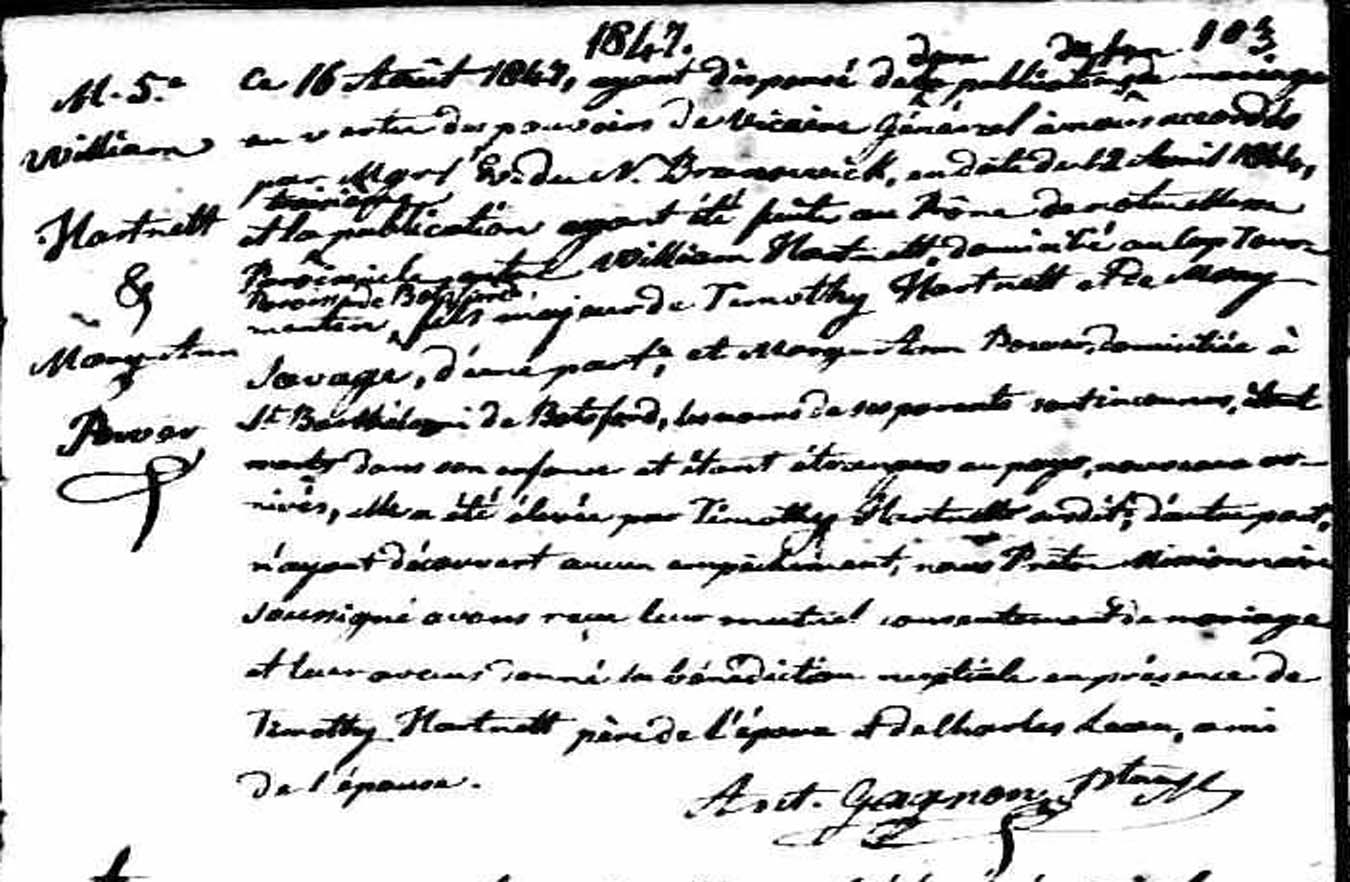 1847. 103
M. 5.e
William
Hartnett
&
Mary Ann
Power
deux
Ce 16 Août 1847, ayant dispensé de publications de mariage
en vertu des pouvoirs de Vicaire Général à nous accordés
par Mgr l' Ev. du N. Brunswick, en date du 12 Avril
troisième
et la publication ayant été faite au Prône de notre Messe
Paroissiale entre William Hartnett, domicilié au Cap Tour-
Paroisse de Botsford
mentin, fils majeur de Timothy Hartnett et de Mary
Savage, d'une part; et Mary Ann Power, domiciliée à
St. Barthélemi de Botsford, les noms de ses parents sont inconnus, étant
morts dans son enfance et étant étrangers au pays, nouveaux ar-
rivés, elle a été élevée par Timothy Hartnett susdit; d'autre part,
n'ayant découvert aucun empêchement, nous Prêtre Missionnaire
soussigné avons reçu leur mutuel consentement de mariage
et leur avons donné la bénédiction nuptiale en présence de
Timothy Hartnett père de l'époux et de Charles ami
de l'épouse.
Ant. Gagnon Ptre